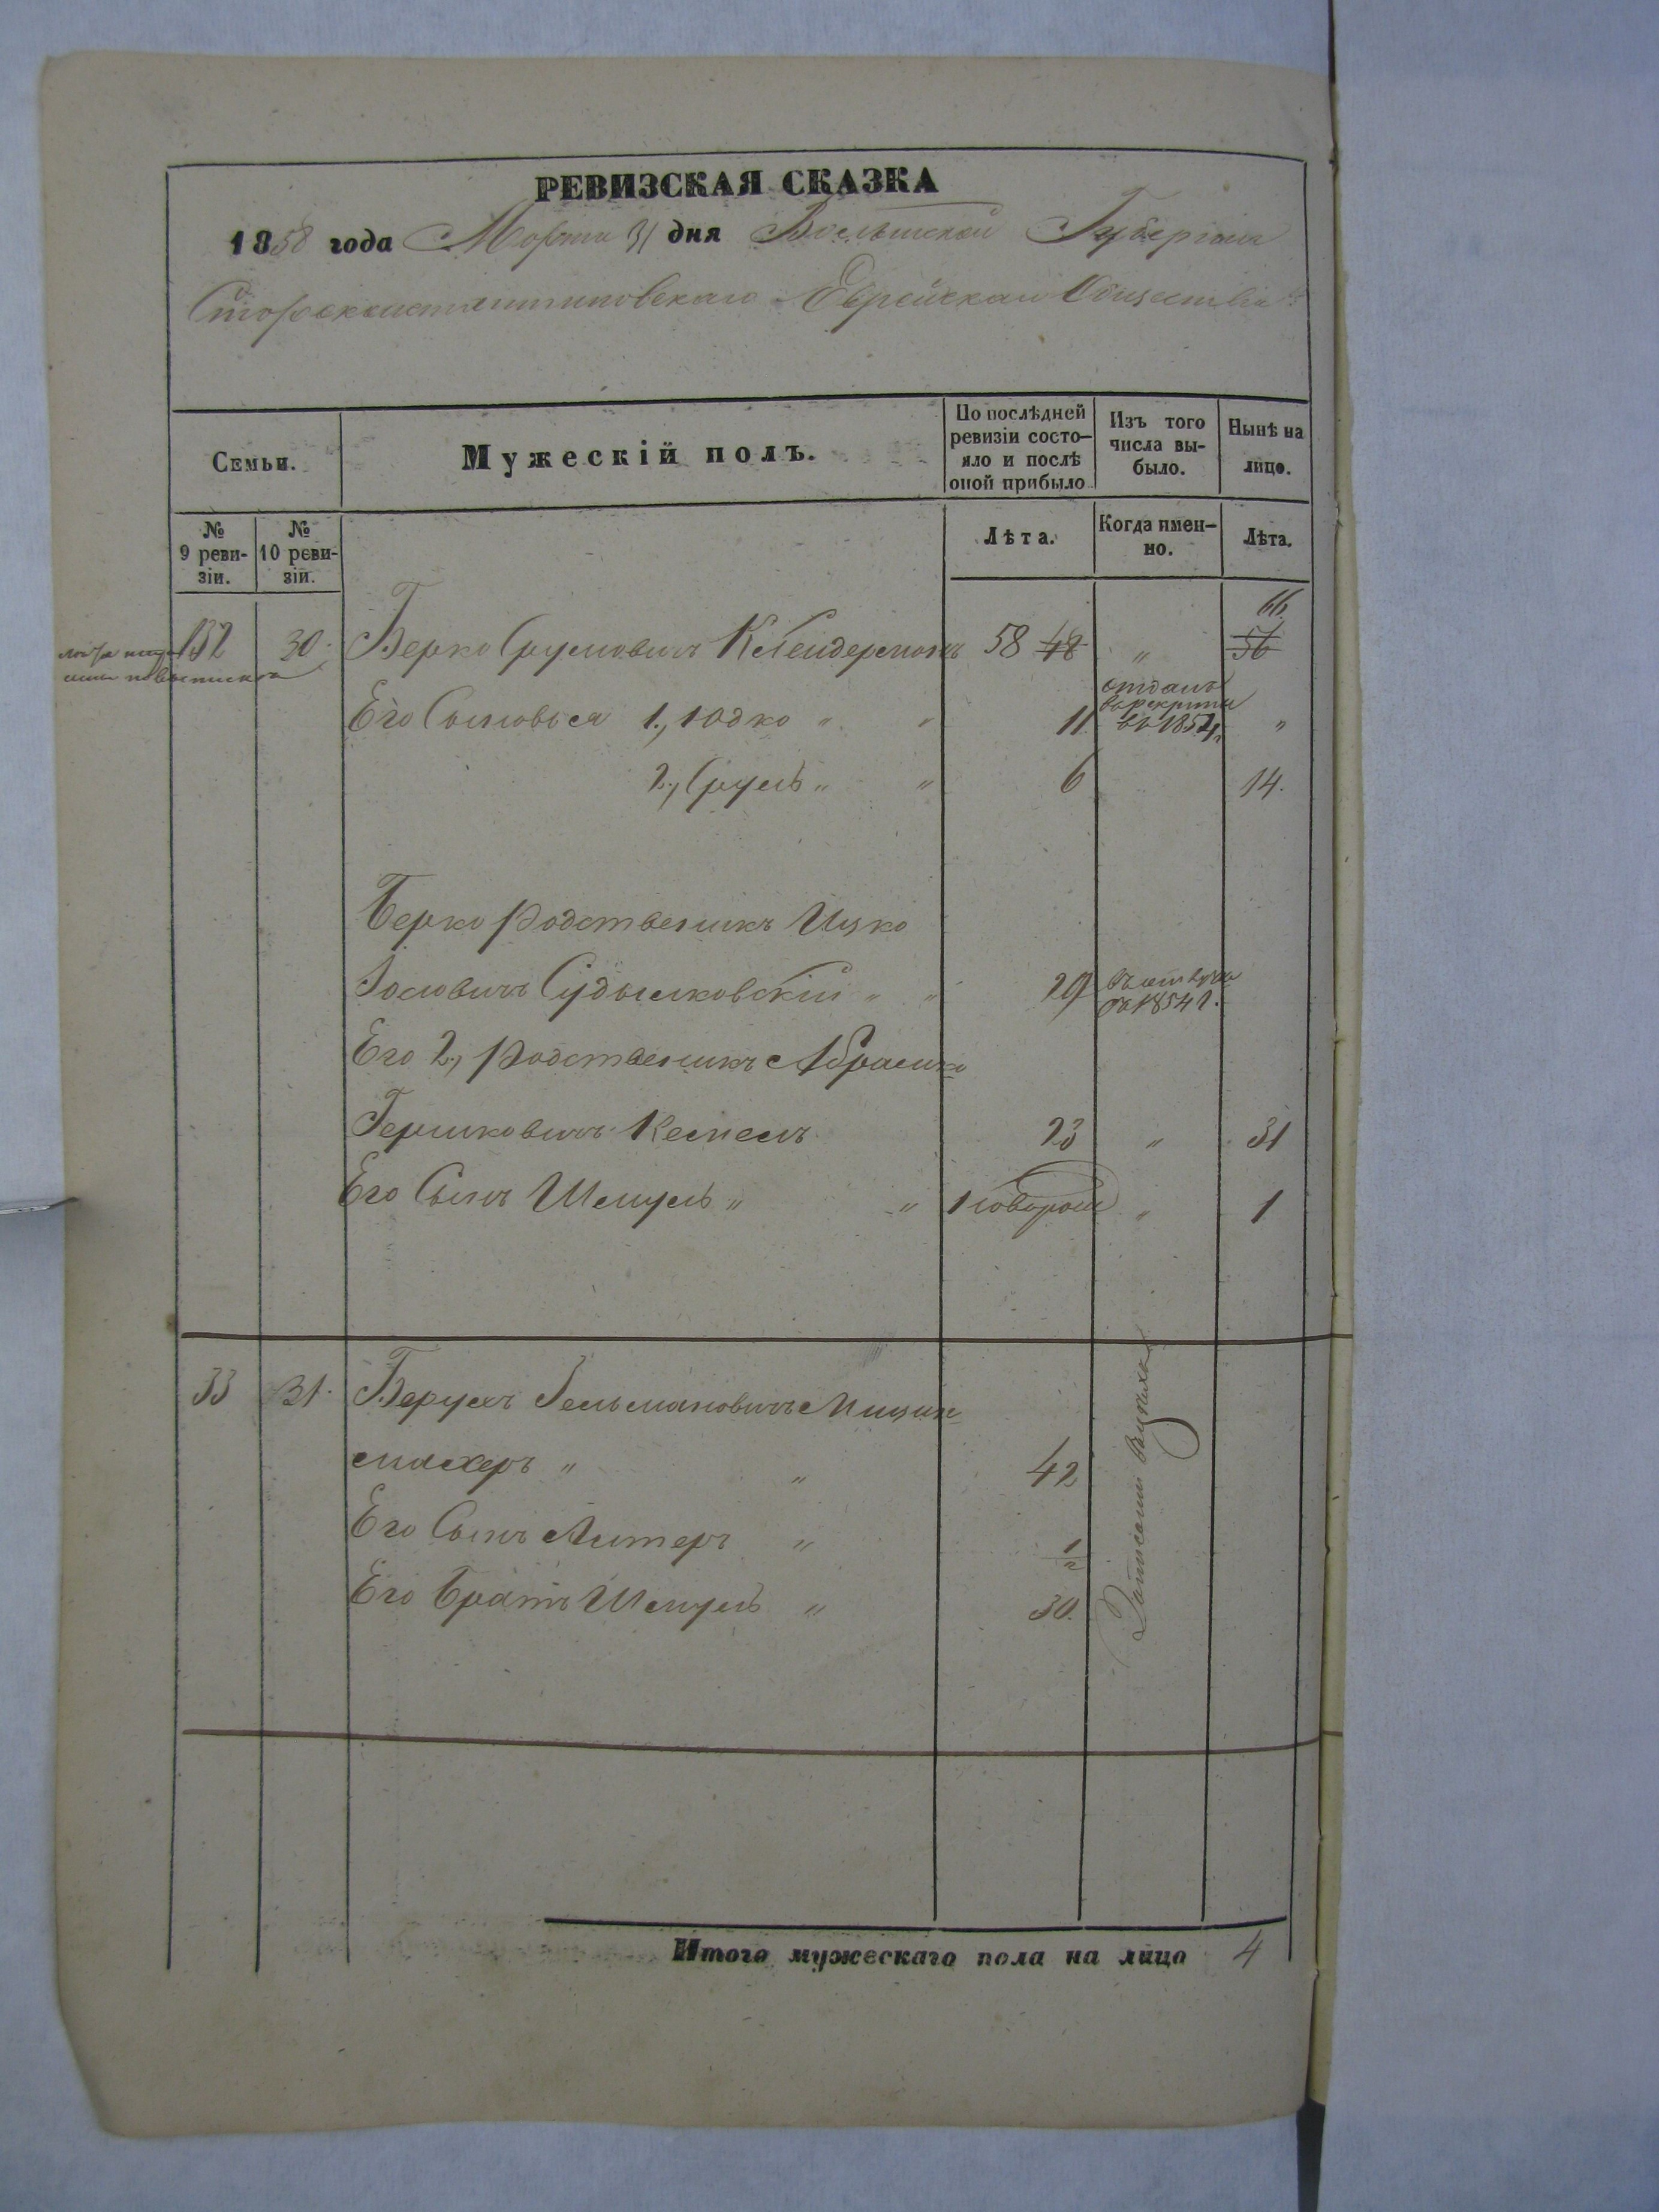 РЕВИЗСКАЯ СКАЗКА
1858 года Марта 31 дня Волынской Губернии
Староконстантиновскаго Еврейскаго Общества
Семьи.
Мужескій полъ.
По послѣдней ревизіи состояло и послѣ оной прибыло
Изъ того числа выбыло.
Нынѣ на лицо.
№ 9 ревизіи.
№ 10 ревизіи.
Лѣта.
Когда именно.
Лѣта.
66
132 30. Берко Сруловичъ Клейдерманъ 58 48 " 56
Его Сыновья 1., Юдко " " 11 отданъ в рекруты в 1854 г. "
2., Сруль " " 6 14.
Берко родственикъ Ицко
Іосовичъ Судылковскій " " 29 1854 г.
Его 2., родственикъ Абрамко
Гершковичъ Кеслель 23 " 31
Его Сынъ Шмуль " " 1 " 1
33 31. Берухъ Гельмановичъ Мицен-
махеръ " " 42
Его Сынъ Алтеръ " 1/2
Его Братъ Шмуль " 30.
Итого мужескаго пола на лицо 4